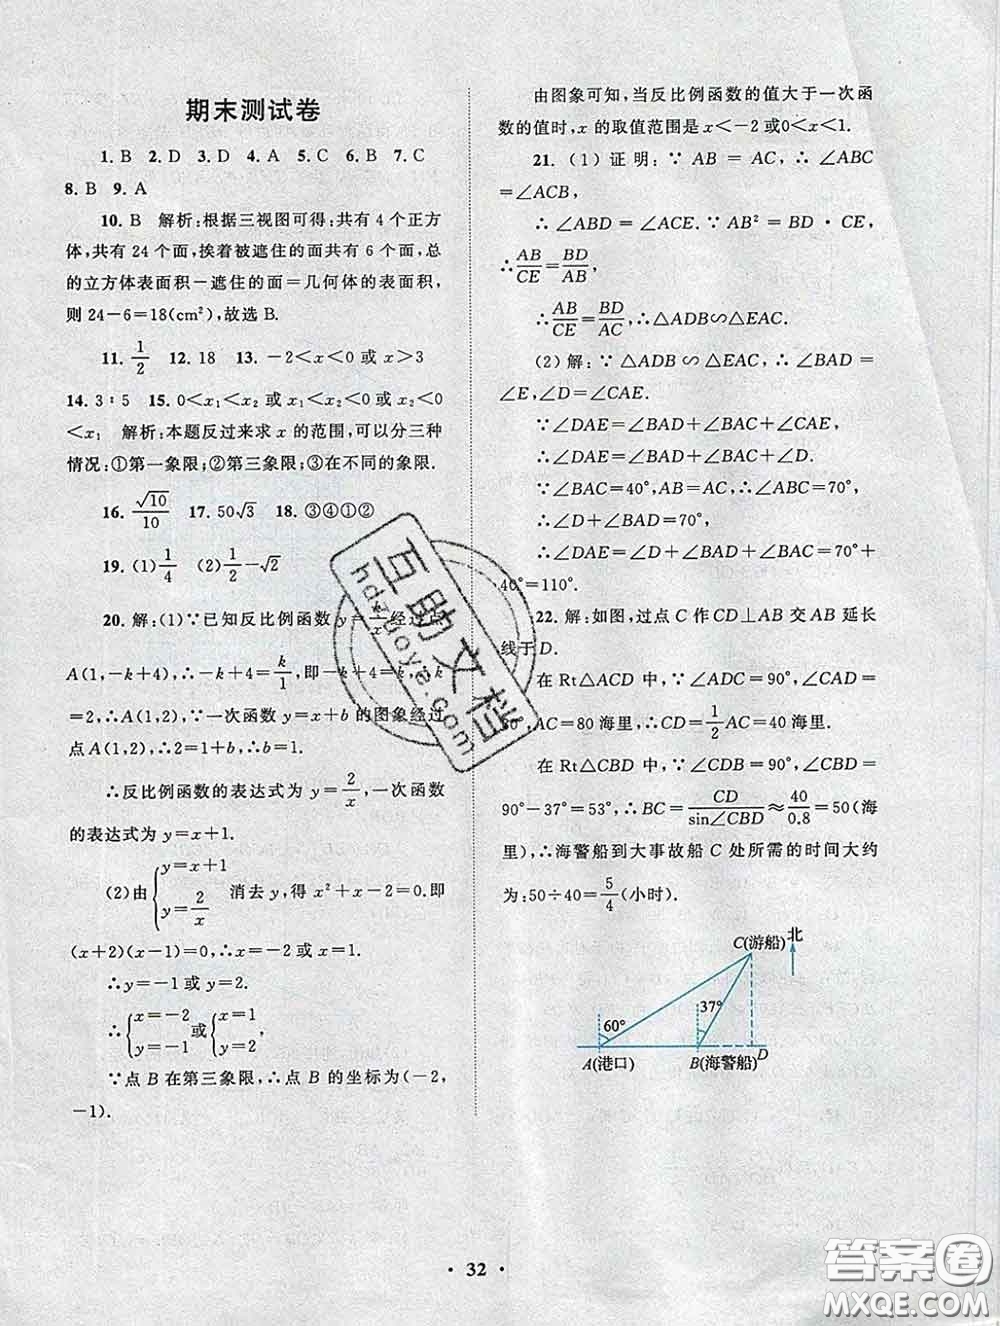 期末测试卷
1. B 2. D 3. D 4. A 5. C 6. B 7. C
8. B 9. A
10. B 解析:根据三视图可得:共有 4 个正方
体,共有 24 个面,挨着被遮住的面共有 6 个面,总
的立方体表面积-遮住的面=几何体的表面积,
则 24-6=18(cm²),故选 B.
11. 1/2 12. 18 13. -2<x<0 或 x>3
14. 3∶5 15. 0<x₁<x₂ 或 x₁<x₂<0 或 x₂<0
<x₁ 解析:本题反过来求 x 的范围,可以分三种
情况:①第一象限;②第三象限;③在不同的象限.
16. √10/10 17. 50√3 18. ③④①②
19. (1) 1/4 (2) 1/2-√2
20. 解:(1)∵已知反比例函数 y=k/x 经过点
A(1,-k+4),∴-k+4=k/1,即-k+4=k,∴k
=2,∴A(1,2),∵一次函数 y=x+b 的图象经过
点 A(1,2),∴2=1+b,∴b=1.
∴反比例函数的表达式为 y=2/x,一次函数
的表达式为 y=x+1.
(2)由{y=x+1 y=2/x 消去 y,得 x²+x-2=0.即
(x+2)(x-1)=0,∴x=-2 或 x=1.
∴y=-1 或 y=2.
∴{x=-2 y=-1 或{x=1 y=2,
∵点 B 在第三象限,∴点 B 的坐标为(-2,
-1).
由图象可知,当反比例函数的值大于一次函
数的值时,x 的取值范围是 x<-2 或0<x<1.
21. (1) 证明:∵ AB = AC,∴ ∠ABC
=∠ACB,
∴ ∠ABD = ∠ACE. ∵ AB² = BD · CE,
∴AB/CE=BD/AB,
∴AB/CE=BD/AC,∴△ADB∽△EAC.
(2) 解:∵ △ADB ∽ △EAC,∴ ∠BAD =
∠E,∠D=∠CAE.
∵∠DAE=∠BAD+∠BAC+∠CAE,
∴∠DAE=∠BAD+∠BAC+∠D.
∵∠BAC=40°,AB=AC,∴∠ABC=70°,
∴∠D+∠BAD=70°,
∴∠DAE=∠D+∠BAD+∠BAC=70°+
40°=110°.
22. 解:如图,过点 C 作 CD⊥AB 交 AB 延长
线于 D.
在 Rt△ACD 中,∵∠ADC=90°,∠CAD=
30°,AC=80 海里,∴CD=1/2AC=40 海里.
在 Rt△CBD 中,∵∠CDB=90°,∠CBD=
90°-37°=53°,∴BC=CD/sin∠CBD≈40/0.8=50(海
里),∴海警船到大事故船 C 处所需的时间大约
为:50÷40=5/4(小时).
C(游船) 北
60° 37°
A(港口) B(海警船) D
· 32 ·
互助文档
hdzuoye.com
答案圈
MXQE.COM